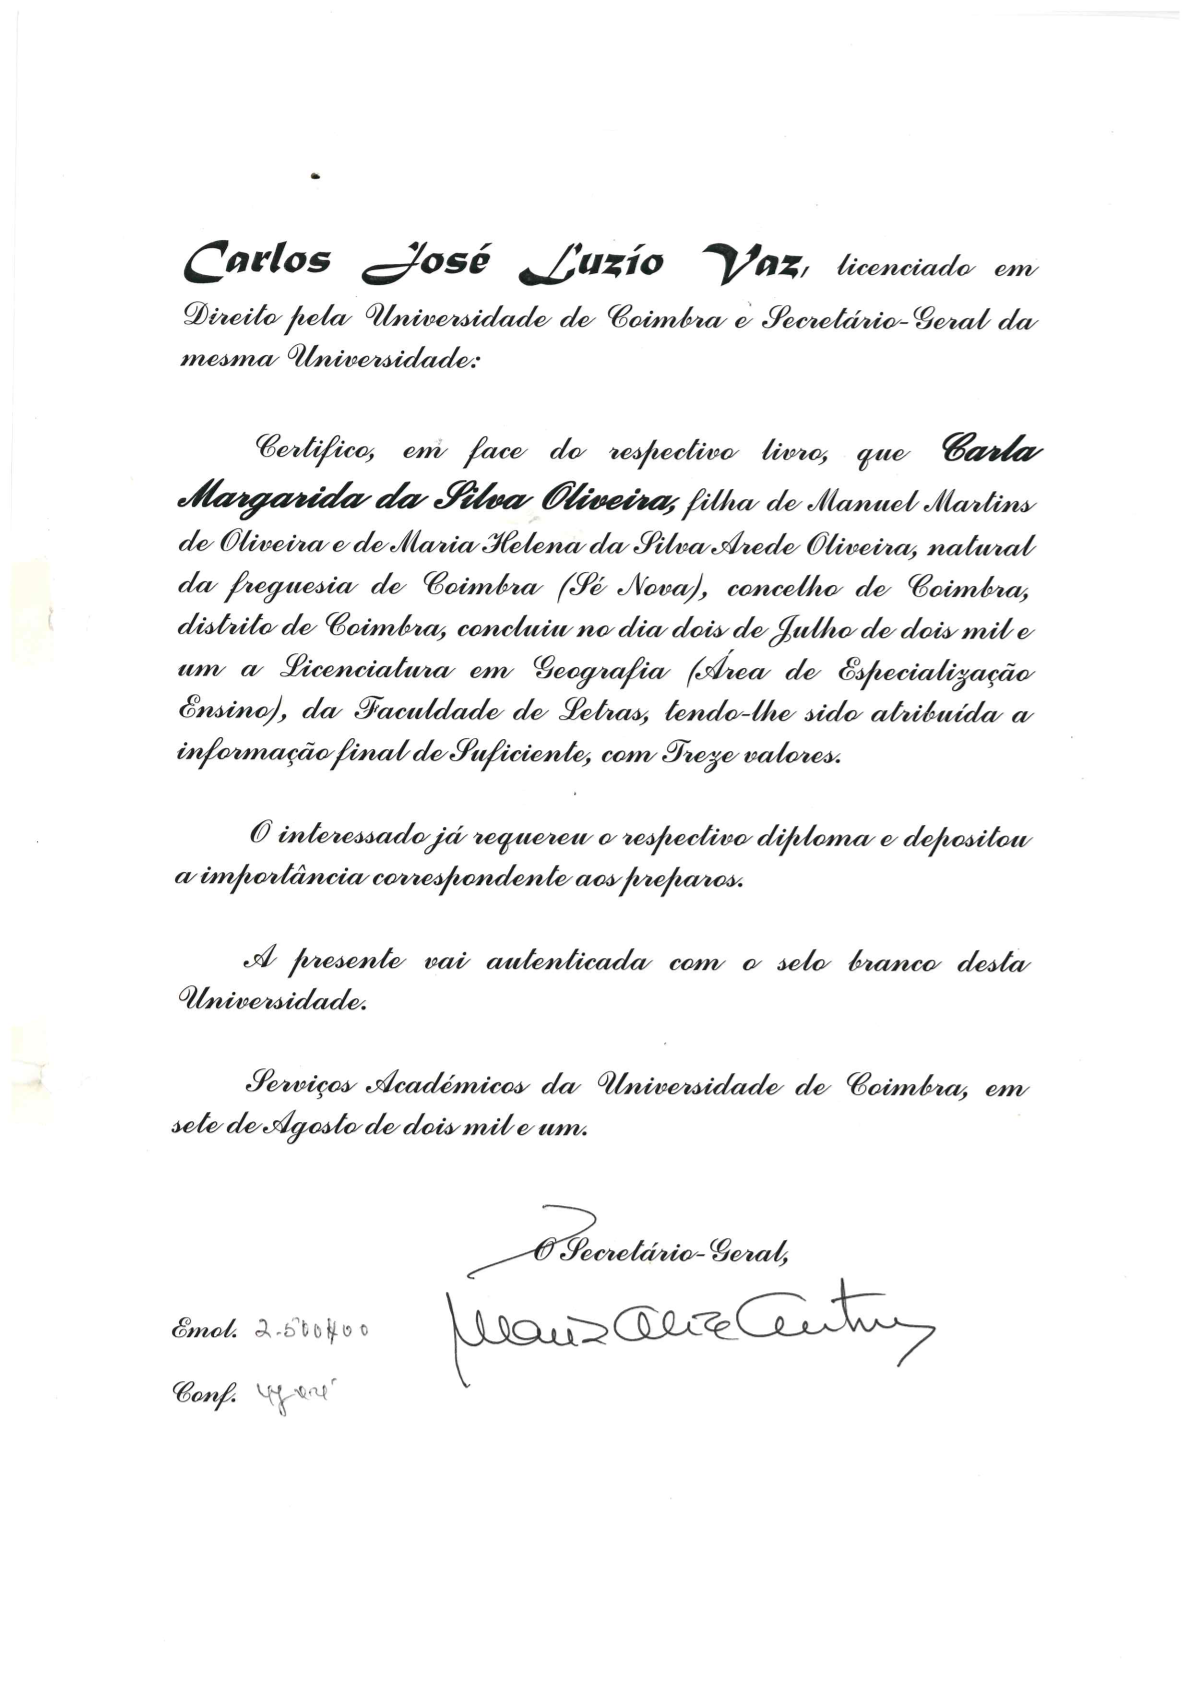 Carlos José Luzío Vaz, licenciado em
Direito pela Universidade de Coimbra e Secretário-Geral da
mesma Universidade:
Certifico, em face do respectivo livro, que Carla
Margarida da Silva Oliveira, filha de Manuel Martins
de Oliveira e de Maria Helena da Silva Arede Oliveira, natural
da freguesia de Coimbra (Sé Nova), concelho de Coimbra,
distrito de Coimbra, concluiu no dia dois de Julho de dois mil e
um a Licenciatura em Geografia (Área de Especialização
Ensino), da Faculdade de Letras, tendo-lhe sido atribuída a
informação final de Suficiente, com Treze valores.
O interessado já requereu o respectivo diploma e depositou
a importância correspondente aos preparos.
A presente vai autenticada com o selo branco desta
Universidade.
Serviços Académicos da Universidade de Coimbra, em
sete de Agosto de dois mil e um.
O Secretário-Geral,
Emol. 2.500$00
Conf.